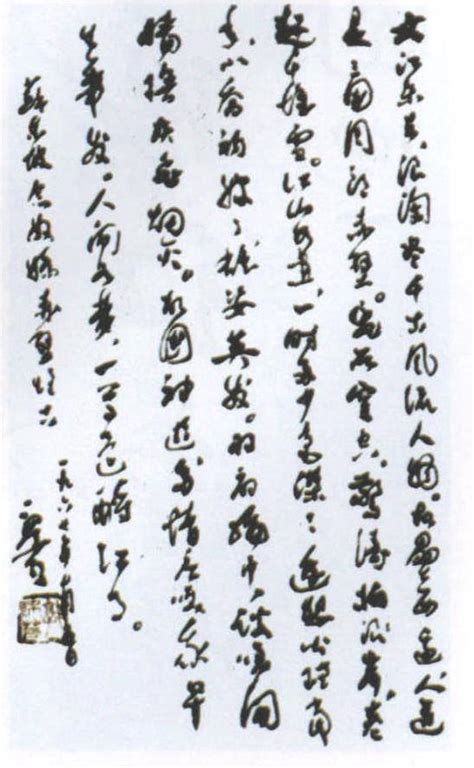 大江东去,浪淘尽千古风流人物。故垒西边,人道
是三国周郎赤壁。乱石穿空,惊涛拍岸,卷
起千堆雪。江山如画,一时多少豪杰。遥想公瑾当
年,小乔初嫁了,雄姿英发。羽扇纶巾,谈笑间
樯橹灰飞烟灭。故国神游,多情应笑,我早
生华发。人间如梦,一尊还酹江月。
苏东坡念奴娇赤壁怀古
一九六七年